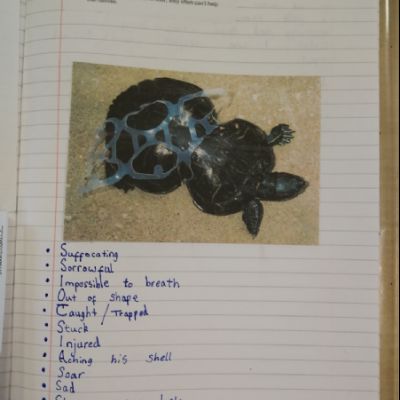 they often can't help
• Suffocating
• Sorrowful
• Impossible to breath
• Out of shape
• Caught / Trapped
• Stuck
• Injured
• Aching his shell
• Soar
• Sad